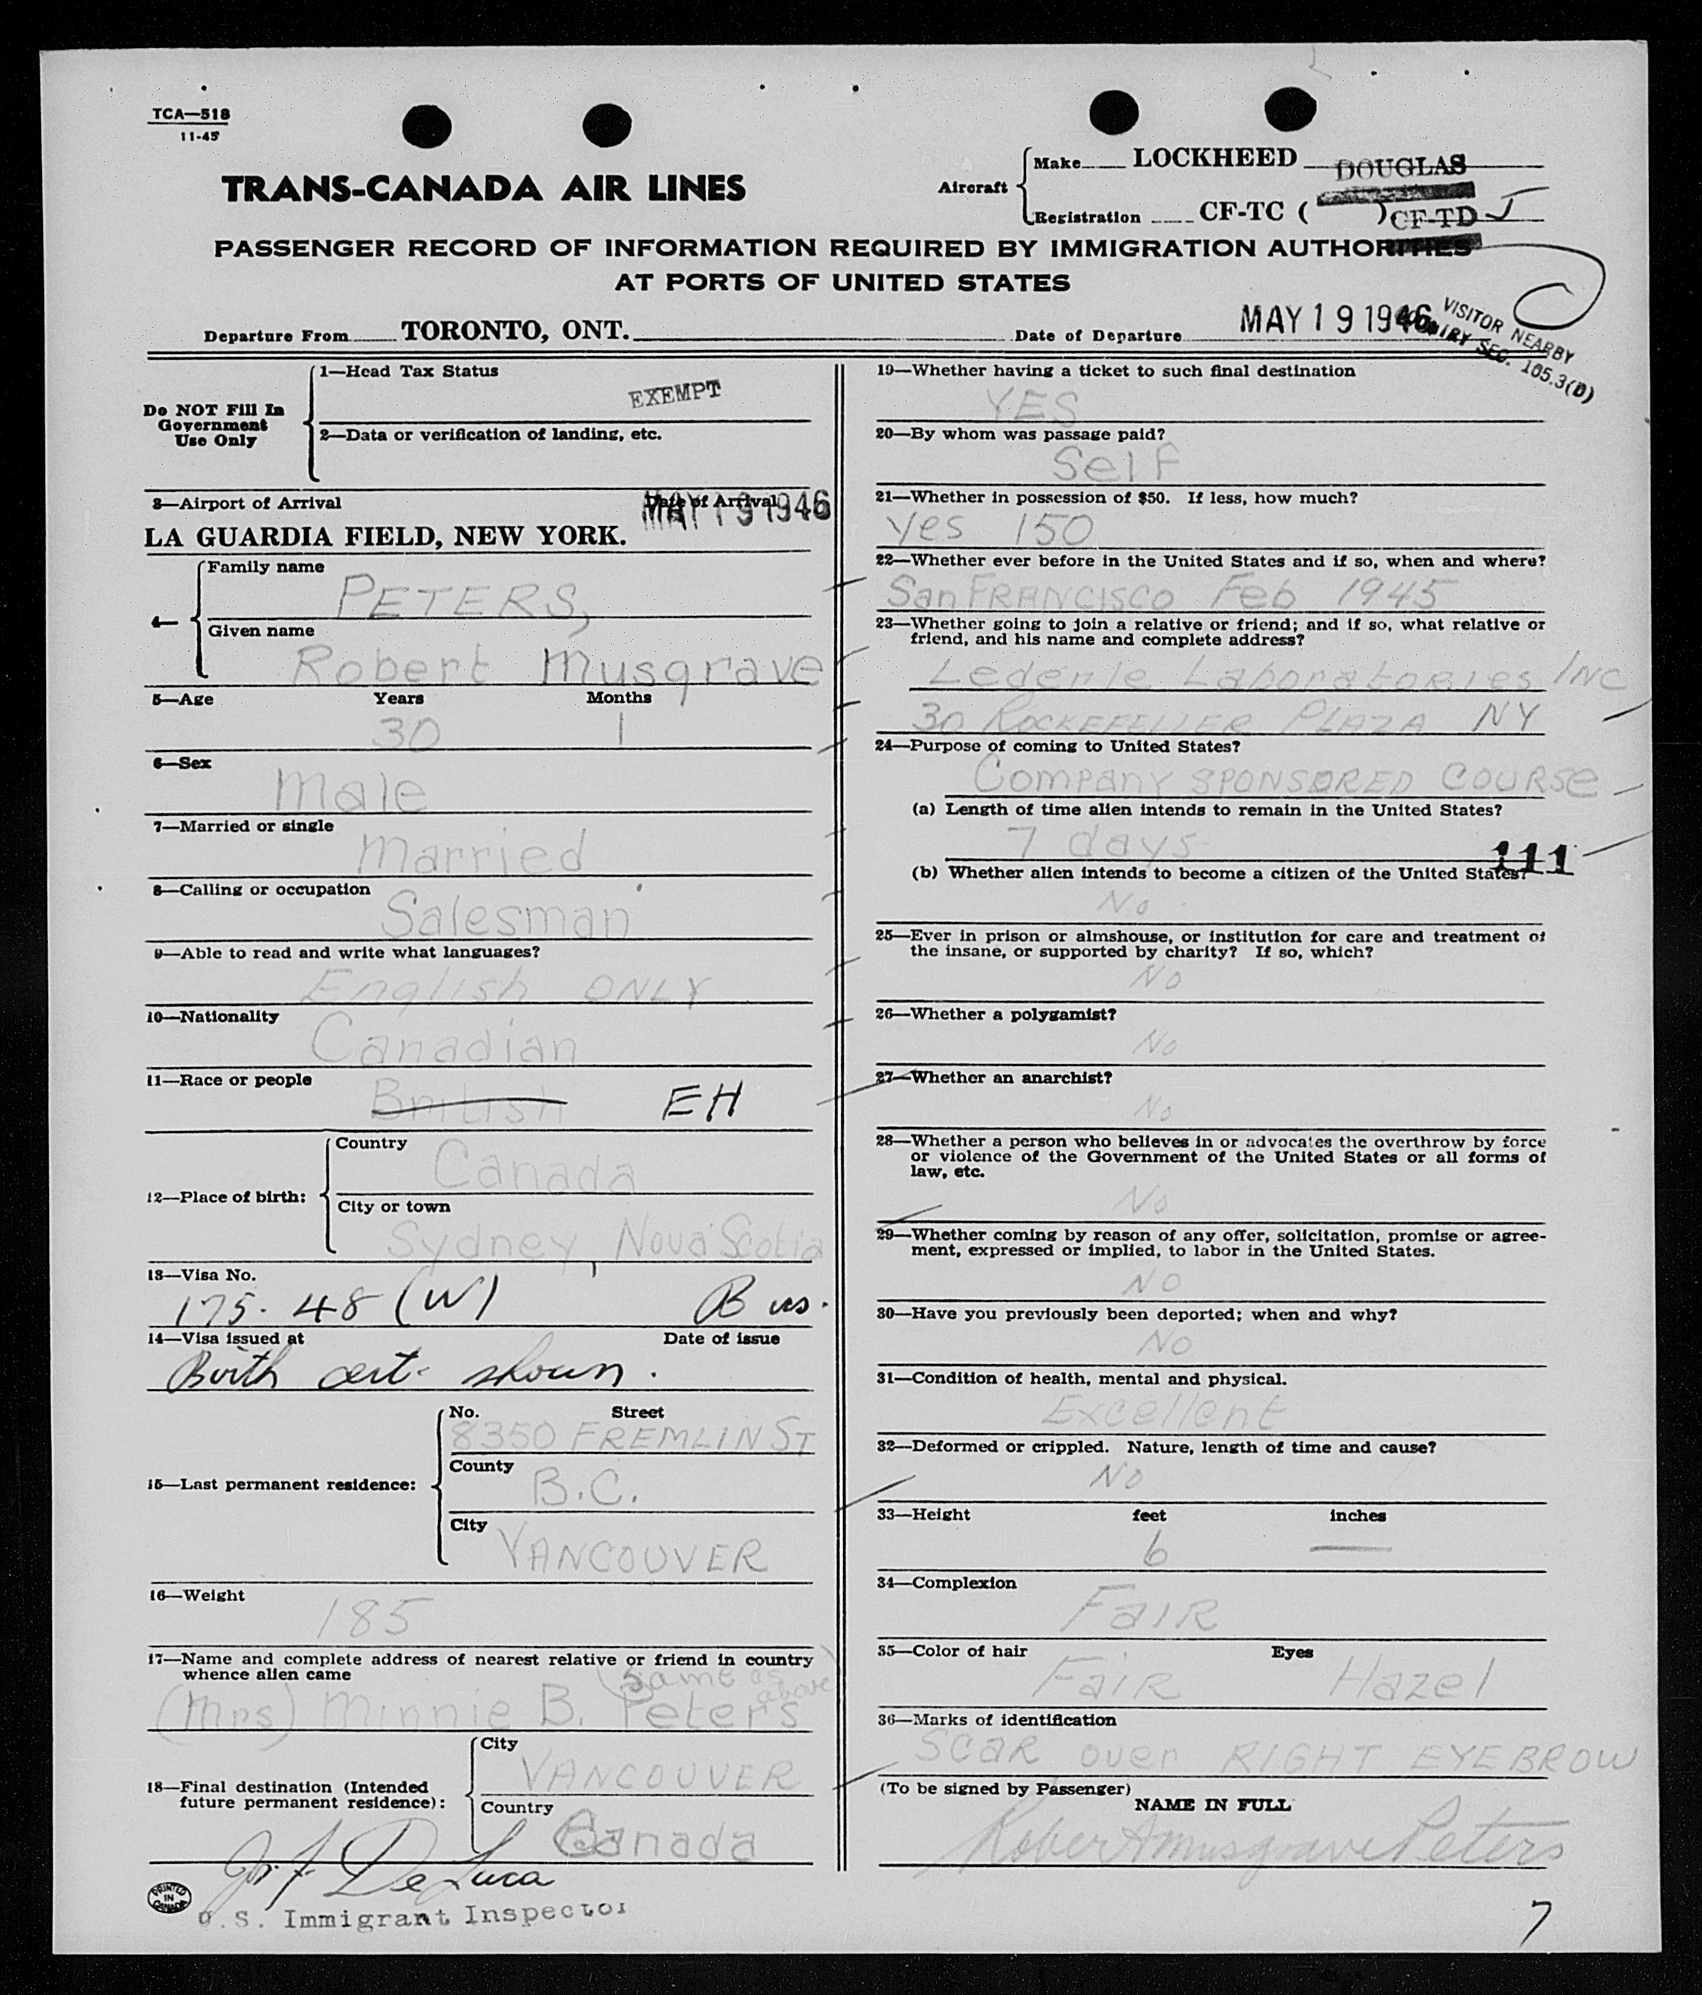 TCA—518
11-45
TRANS-CANADA AIR LINES
Aircraft
Make LOCKHEED DOUGLAS
Registration CF-TC ( ) CF-TD J
PASSENGER RECORD OF INFORMATION REQUIRED BY IMMIGRATION AUTHORITIES
AT PORTS OF UNITED STATES
Departure From TORONTO, ONT. Date of Departure MAY 19 1946
VISITOR NEARBY
SEC. 105.3(D)
Do NOT Fill In
Government
Use Only
1—Head Tax Status
EXEMPT
2—Data or verification of landing, etc.
3—Airport of Arrival Date of Arrival
MAY 19 1946
LA GUARDIA FIELD, NEW YORK.
4—
Family name
PETERS,
Given name
Robert Musgrave
5—Age Years Months
30 1
6—Sex
Male
7—Married or single
Married
8—Calling or occupation
Salesman
9—Able to read and write what languages?
English ONLY
10—Nationality
Canadian
11—Race or people
British EH
12—Place of birth:
Country
Canada
City or town
Sydney, Nova Scotia
13—Visa No.
175.48 (W) Bus.
14—Visa issued at Date of issue
Birth cert. shown.
15—Last permanent residence:
No. Street
8350 FREMLIN ST
County
B.C.
City
VANCOUVER
16—Weight
185
17—Name and complete address of nearest relative or friend in country
whence alien came
(same as above)
(Mrs) Minnie B. Peters
18—Final destination (Intended
future permanent residence):
City
VANCOUVER
Country
Canada
De Luca
U.S. Immigrant Inspector
PRINTED
IN
CANADA
19—Whether having a ticket to such final destination
YES
20—By whom was passage paid?
Self
21—Whether in possession of $50. If less, how much?
Yes 150
22—Whether ever before in the United States and if so, when and where?
San FRANCISCO Feb 1945
23—Whether going to join a relative or friend; and if so, what relative or
friend, and his name and complete address?
Lederle Laboratories INC
30 ROCKEFELLER PLAZA NY
24—Purpose of coming to United States?
Company SPONSORED COURSE
(a) Length of time alien intends to remain in the United States?
7 days
111
(b) Whether alien intends to become a citizen of the United States?
No
25—Ever in prison or almshouse, or institution for care and treatment of
the insane, or supported by charity? If so, which?
No
26—Whether a polygamist?
No
27—Whether an anarchist?
No
28—Whether a person who believes in or advocates the overthrow by force
or violence of the Government of the United States or all forms of
law, etc.
No
29—Whether coming by reason of any offer, solicitation, promise or agree-
ment, expressed or implied, to labor in the United States.
NO
30—Have you previously been deported; when and why?
No
31—Condition of health, mental and physical.
Excellent
32—Deformed or crippled. Nature, length of time and cause?
No
33—Height feet inches
6 —
34—Complexion
FAIR
35—Color of hair Eyes
FAIR Hazel
36—Marks of identification
SCAR over RIGHT EYEBROW
(To be signed by Passenger)
NAME IN FULL
Robert Musgrave Peters
7